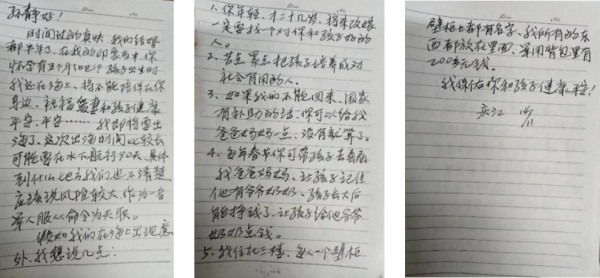 孙静好!
时间过的真快,我们结婚
都半年了,在我的印象当中你
怀含有五个月的巳,孩子出生时
我还在海上,将不能陪伴在你
身边,祝福爱妻和孩子健康
平安,平安……我即将要出
海了,这次出海时间比较长
可能要在水下航行90天,具体
到什么地方我们也不清楚
应该说风险较大,作为一名
军人服从命令为天职。
假如我们在海上出现意
外,我想说几点:
1、你年轻,才二十几岁,将来改嫁
一定要找个对你和孩子好的
人。
2、苦点累点把孩子培养成对
社会有用的人。
3、如果我们不能回来,国家
有补助的话,你可以给我
爸爸妈妈一点,没有就算了。
4、每年春节你可带孩子去看看
我爸爸妈妈,让孩子记住
他有爷爷奶奶,孩子长大后
能挣钱了,让孩子给他爷爷
奶奶点钱。
5、我住在三楼,每人一个壁柜
壁柜上都有名字,我所有的东
西都放在里面,军用背包里有
2000多元钱。
我保佑你和孩子健康平安!
庆江